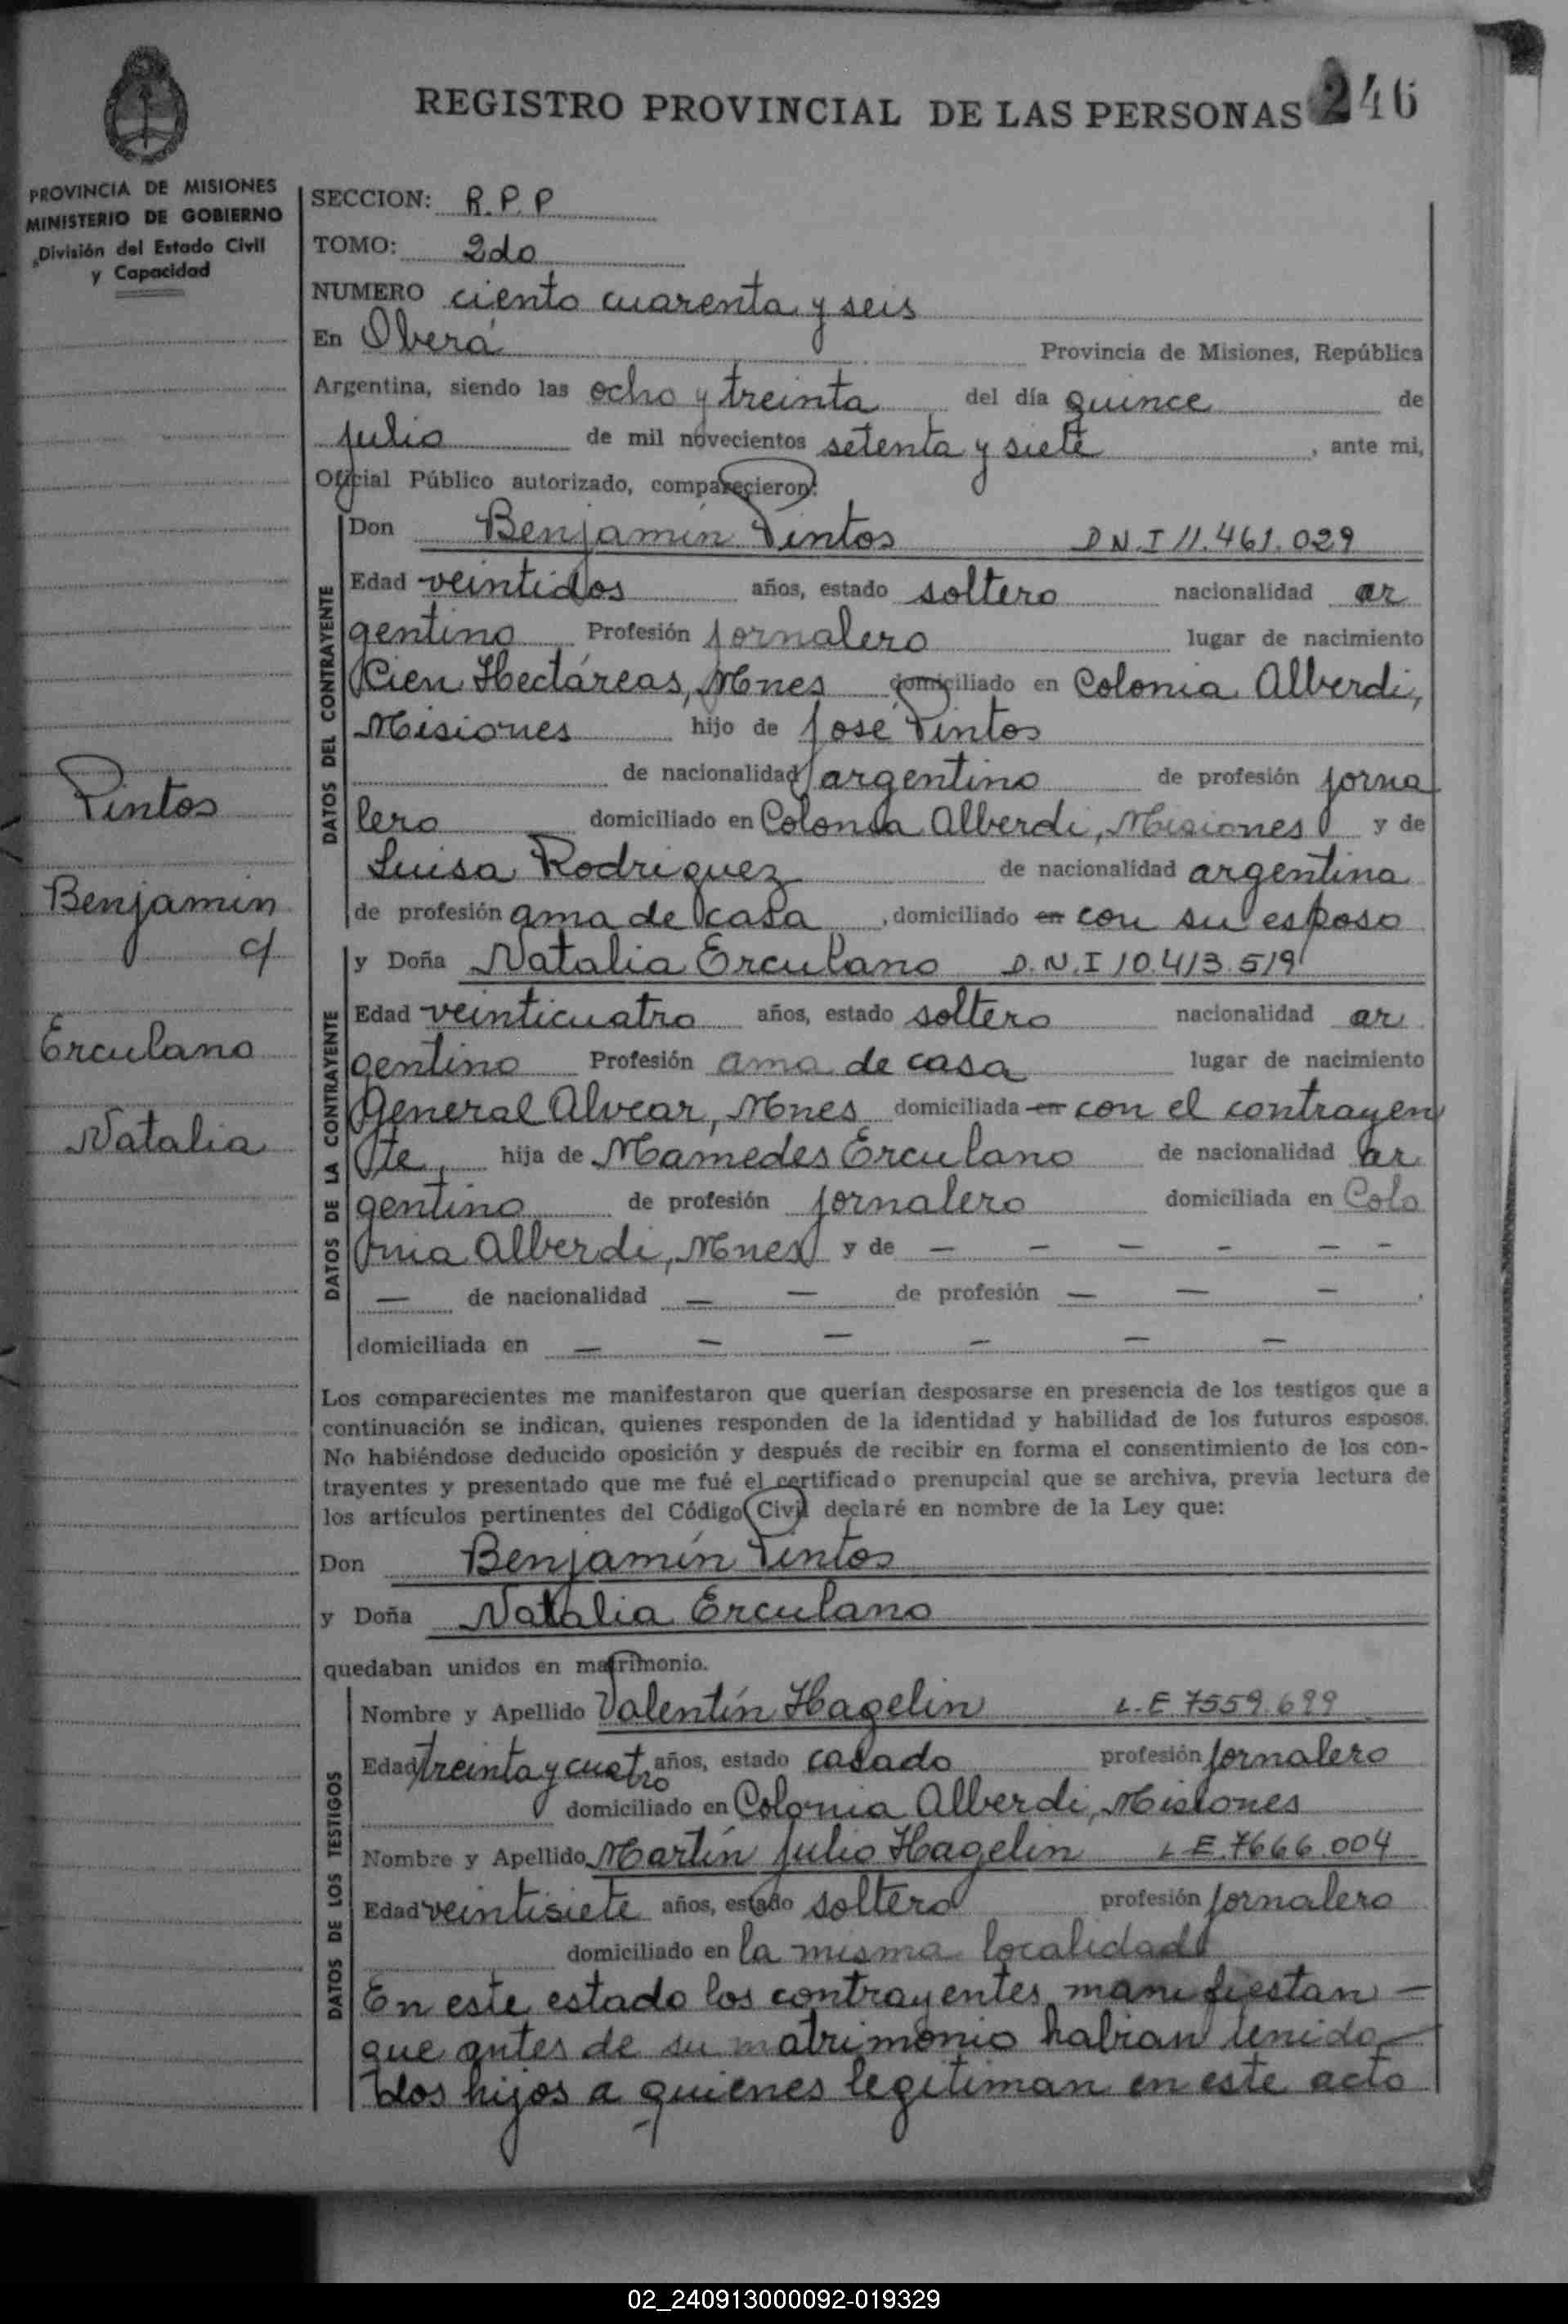 REGISTRO PROVINCIAL DE LAS PERSONAS 246
PROVINCIA DE MISIONES
MINISTERIO DE GOBIERNO
División del Estado Civil
y Capacidad
SECCION: R.P.P
TOMO: 2do
NUMERO ciento cuarenta y seis
En Oberá Provincia de Misiones, República
Argentina, siendo las ocho y treinta del día quince de
julio de mil novecientos setenta y siete, ante mi,
Oficial Público autorizado, comparecieron:
DATOS DEL CONTRAYENTE
Don Benjamín Pintos D N I 11.461.029
Edad veintidos años, estado soltero nacionalidad ar
gentino Profesión jornalero lugar de nacimiento
Cien Hectáreas, Mnes domiciliado en Colonia Alberdi,
Misiones hijo de José Pintos
de nacionalidad argentino de profesión jorna
lero domiciliado en Colonia Alberdi, Misiones y de
Luisa Rodriguez de nacionalidad argentina
de profesión ama de casa, domiciliado en con su esposo
Pintos
Benjamin
c/
Erculano
Natalia
DATOS DE LA CONTRAYENTE
y Doña Natalia Erculano D.N.I 10.413.519
Edad veinticuatro años, estado soltero nacionalidad ar
gentino Profesión ama de casa lugar de nacimiento
General Alvear, Mnes domiciliada en con el contrayen
te, hija de Mamedes Erculano de nacionalidad ar
gentino de profesión jornalero domiciliada en Colo
nia Alberdi, Mnes y de — — — — — —
— de nacionalidad — — de profesión — — —.
domiciliada en — — — — — —
Los comparecientes me manifestaron que querían desposarse en presencia de los testigos que a
continuación se indican, quienes responden de la identidad y habilidad de los futuros esposos.
No habiéndose deducido oposición y después de recibir en forma el consentimiento de los con-
trayentes y presentado que me fué el certificado prenupcial que se archiva, previa lectura de
los artículos pertinentes del Código Civil declaré en nombre de la Ley que:
Don Benjamín Pintos
y Doña Natalia Erculano
quedaban unidos en matrimonio.
DATOS DE LOS TESTIGOS
Nombre y Apellido Valentín Hagelin L.E 7559.699
Edad treinta y cuatro años, estado casado profesión jornalero
domiciliado en Colonia Alberdi, Misiones
Nombre y Apellido Martín Julio Hagelin L E. 7666.004
Edad veintisiete años, estado soltero profesión jornalero
domiciliado en la misma localidad
En este estado los contrayentes manifiestan —
que antes de su matrimonio habian tenido —
dos hijos a quienes legitiman en este acto
02_240913000092-019329